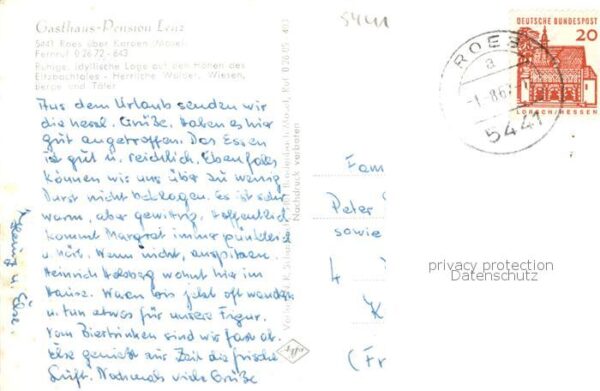 Gasthaus-Pension Lenz
5441 Roes über Karden (Mosel)
Fernruf 0 26 72 - 643
Ruhige, idyllische Lage auf den Höhen des
Eltzbachtales - Herrliche Wälder, Wiesen,
Berge und Täler
Aus dem Urlaub senden wir
die herzl. Grüße. Haben es hier
gut angetroffen. Das Essen
ist gut u. reichlich. Ebenfalls
können wir uns über zu wenig
Durst nicht beklagen. Es ist sehr
warm, aber gewittrig. Hoffentlich
kommt Margret immer pünktlich
u. hört. Wenn nicht,
Heinrich wohnt hier im
Hause. Waren bis jetzt oft wandern
u. tun etwas für unsere Figur.
Vom Biertrinken sind wir fast ab.
Else genießt zur Zeit die frische
Luft. Nochmals viele Grüße
Heinz u. Else
Nachdruck verboten
5441
ROES
a
-1.-8.67
5441
DEUTSCHE BUNDESPOST
20
LORSCH/HESSEN
Fam
Peter
sowie
4
K
(Fr
privacy protection
Datenschutz